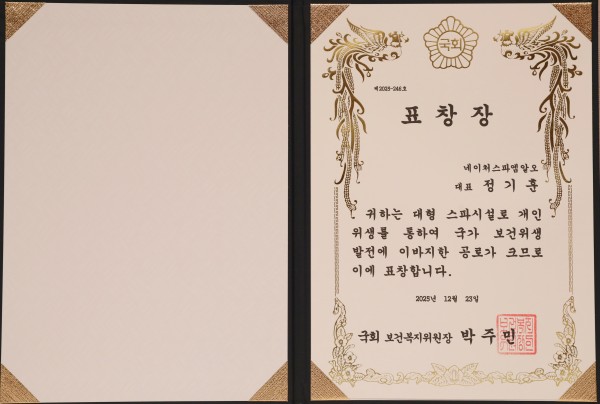 국회
제2025-246호
표 창 장
네이처스파엠알오
대표 정기훈
귀하는 대형 스파시설로 개인
위생를 통하여 국가 보건위생
발전에 이바지한 공로가 크므로
이에 표창합니다.
2025년 12월 23일
국회 보건복지위원장 박주민